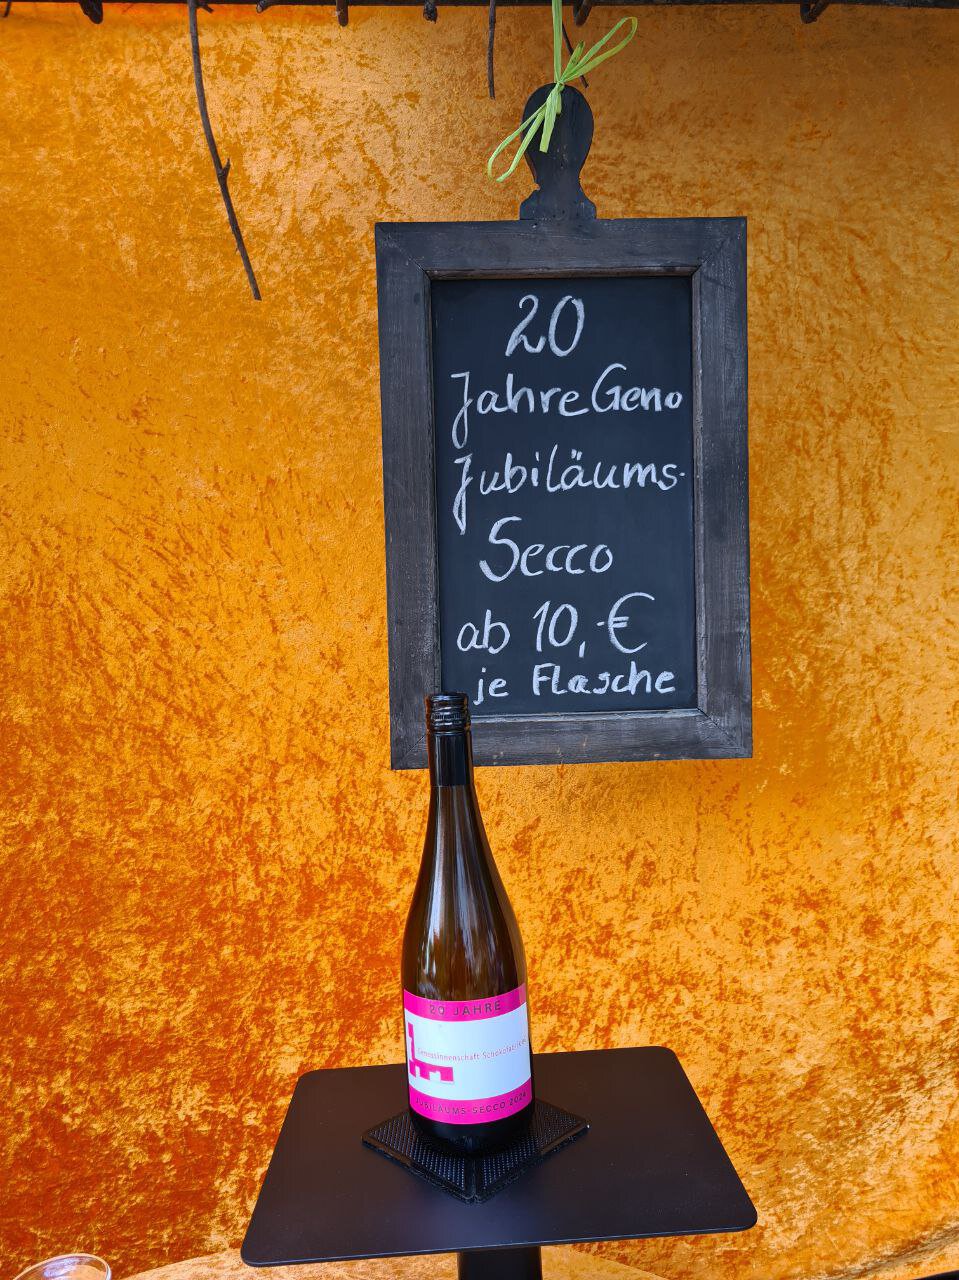 20
Jahre Geno
Jubiläums-
Secco
ab 10,-€
je Flasche
20 JAHRE
Genossinnenschaft Schokofabrik eG
JUBILÄUMS-SECCO 2024